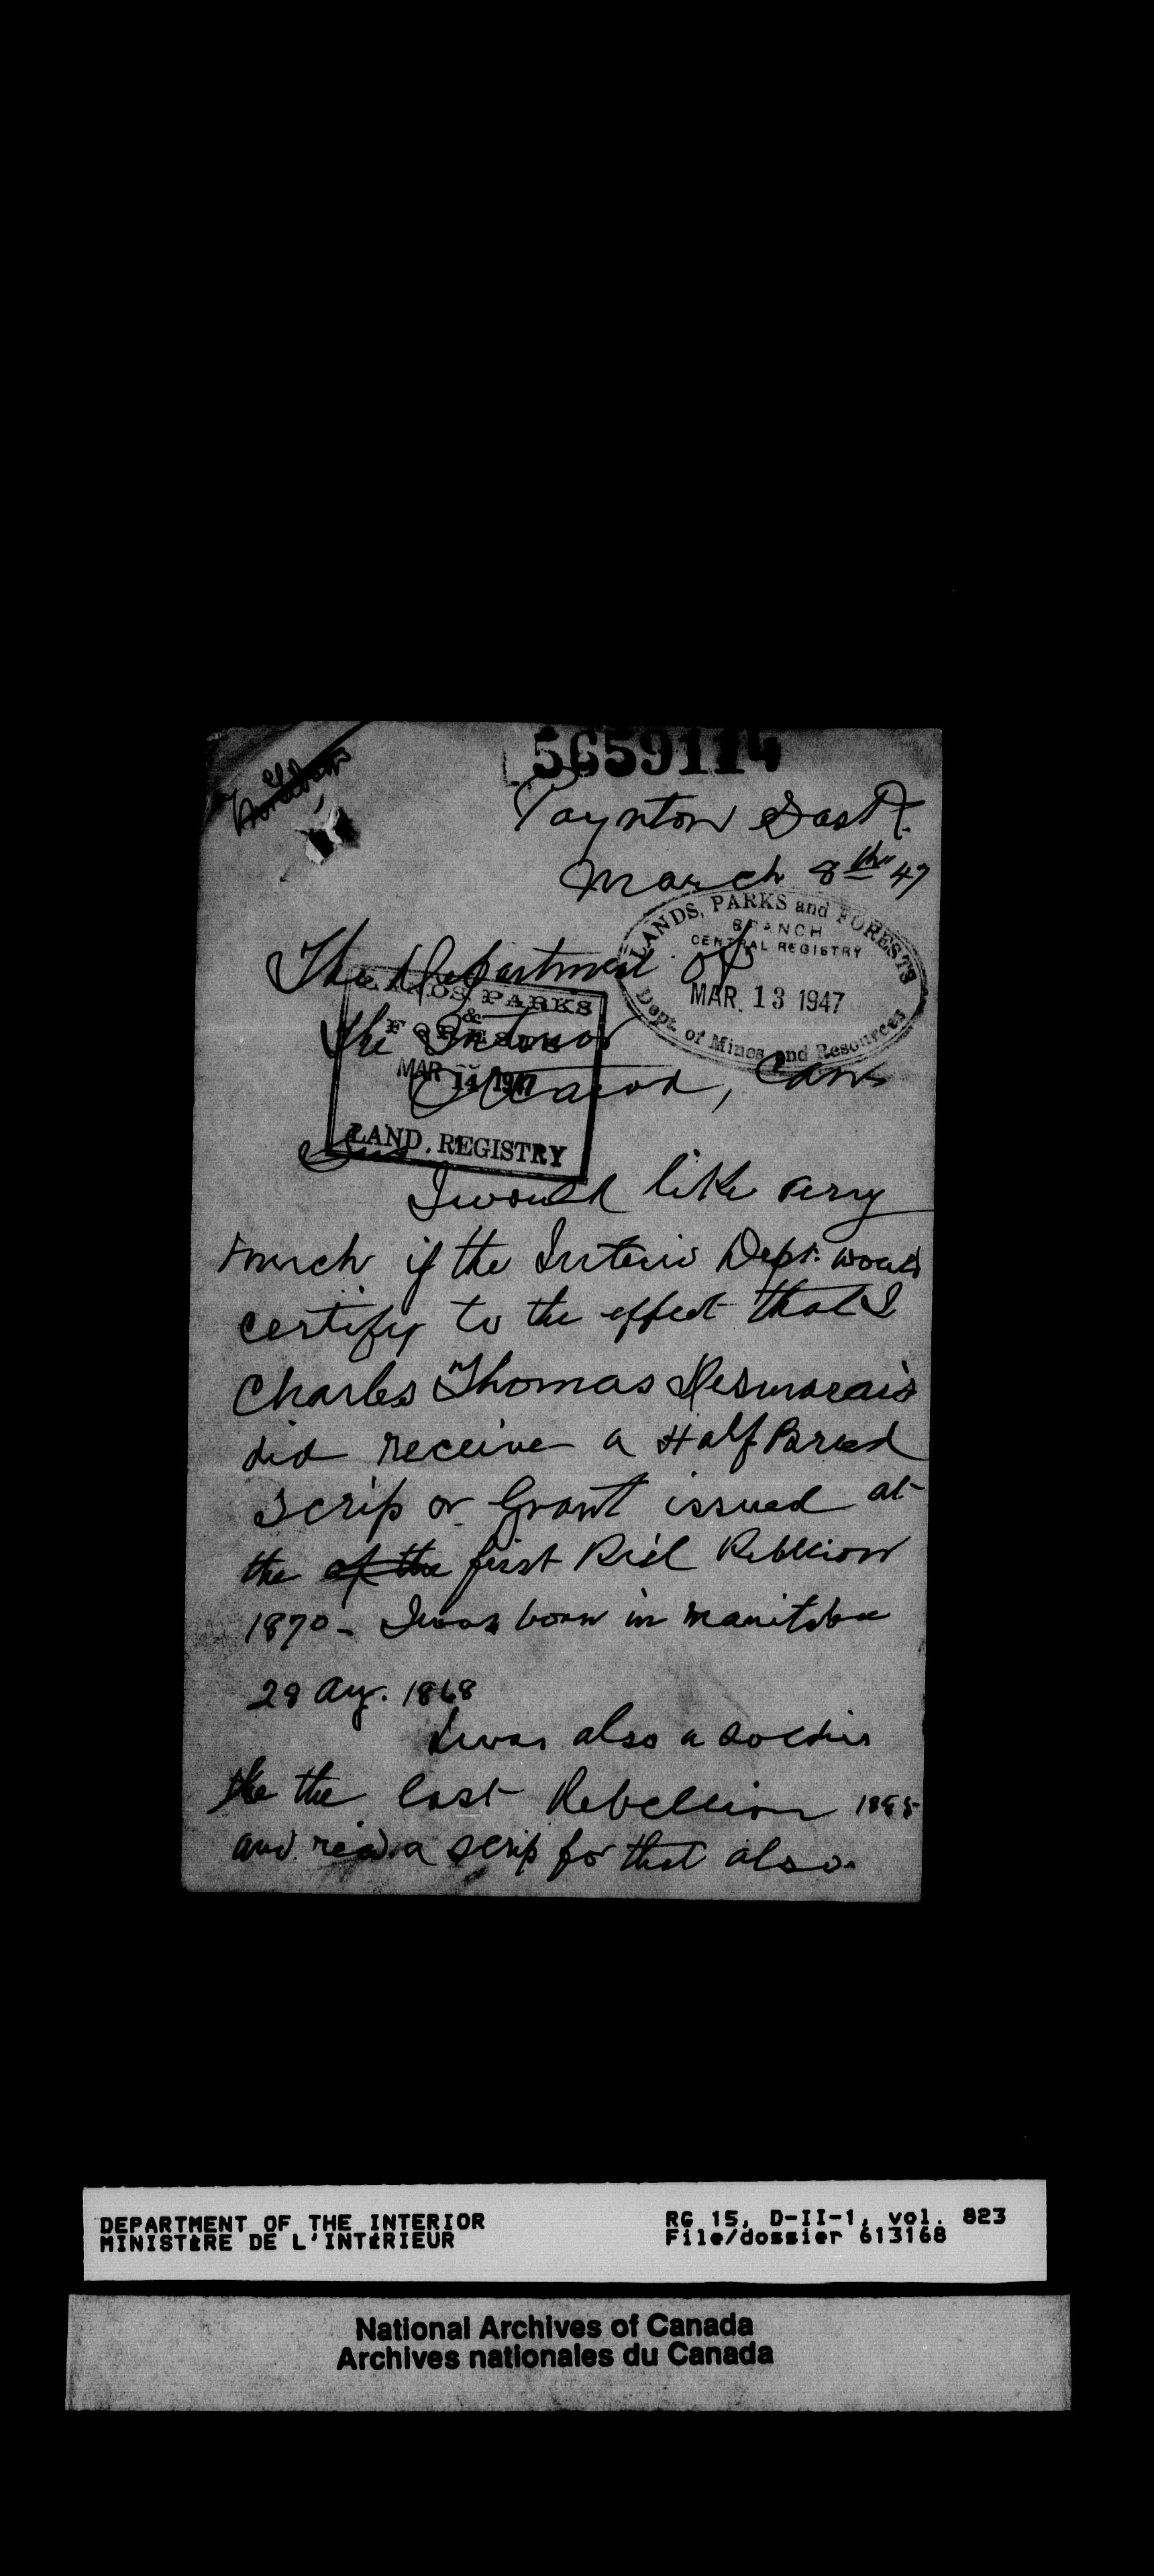 5659114
Paynton Sask.
March 8th 47
LANDS, PARKS and FORESTS
BRANCH
CENTRAL REGISTRY
MAR. 13 1947
Dept. of Mines and Resources
The Department of
The Interior
Ottawa, Can
LANDS PARKS
&
FORESTS
MAR 14 1947
LAND. REGISTRY
Sir
I would like very
much if the Interior Dept. would
certify to the effect that I
Charles Thomas Desmarais
did receive a Half Breed
scrip or Grant issued at
the of the first Riel Rebellion
1870 - I was born in Manitoba
28 Aug. 1868
I was also a soldier
the the last Rebellion 1885
and rec'd a scrip for that also.
DEPARTMENT OF THE INTERIOR
MINISTÈRE DE L'INTÉRIEUR
RG 15, D-II-1, vol. 823
File/dossier 613168
National Archives of Canada
Archives nationales du Canada